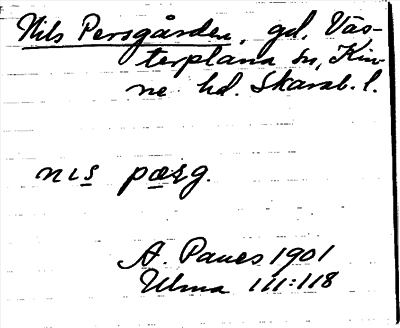 Nils Persgården, gd, Väs-
terplana sn, Kin-
ne hd. Skarab. l.
nıs pærg.
A. Paues 1901
Ulma 111:118